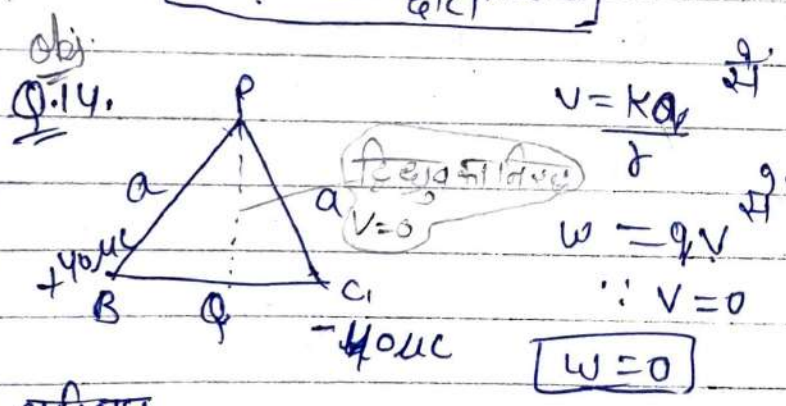 obj.
Q.14.
P
a
a
द्विध्रुव का निरक्ष
V=0
+40µC
B
Q
C
-40µC
V = KQ/r से
W = qV से
∵ V=0
W=0